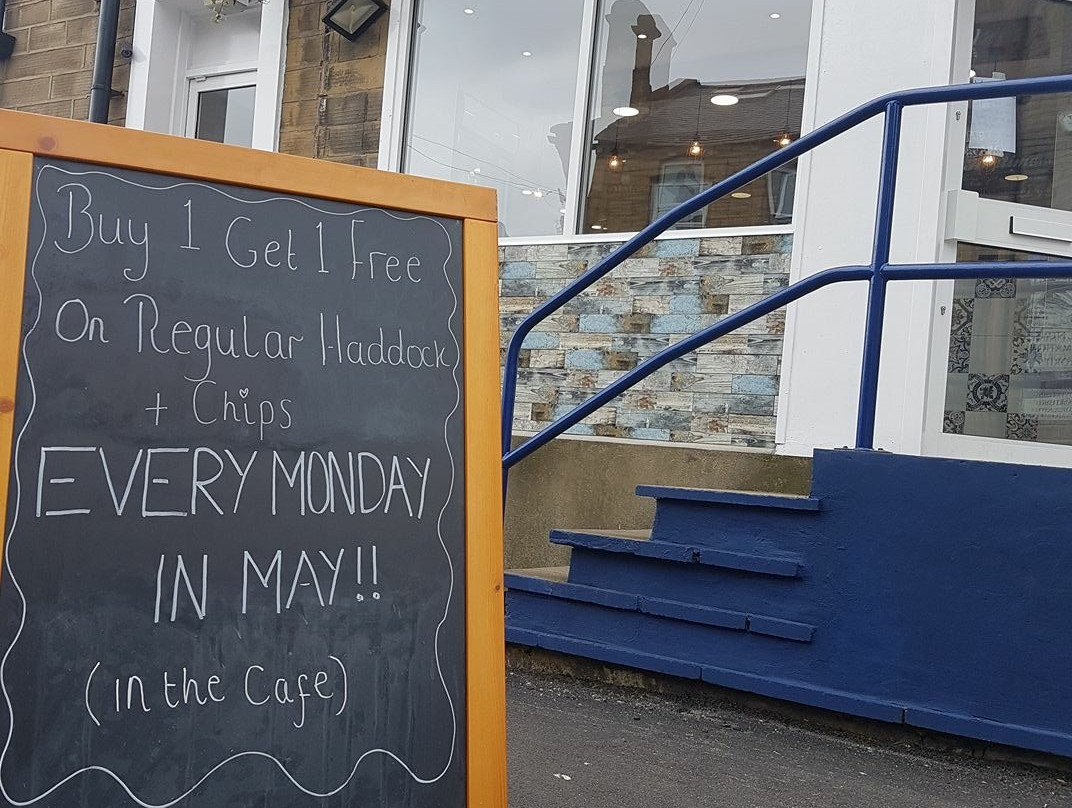 Buy 1 Get 1 Free
On Regular Haddock
+ Chips
EVERY MONDAY
IN MAY!!
(in the Cafe)